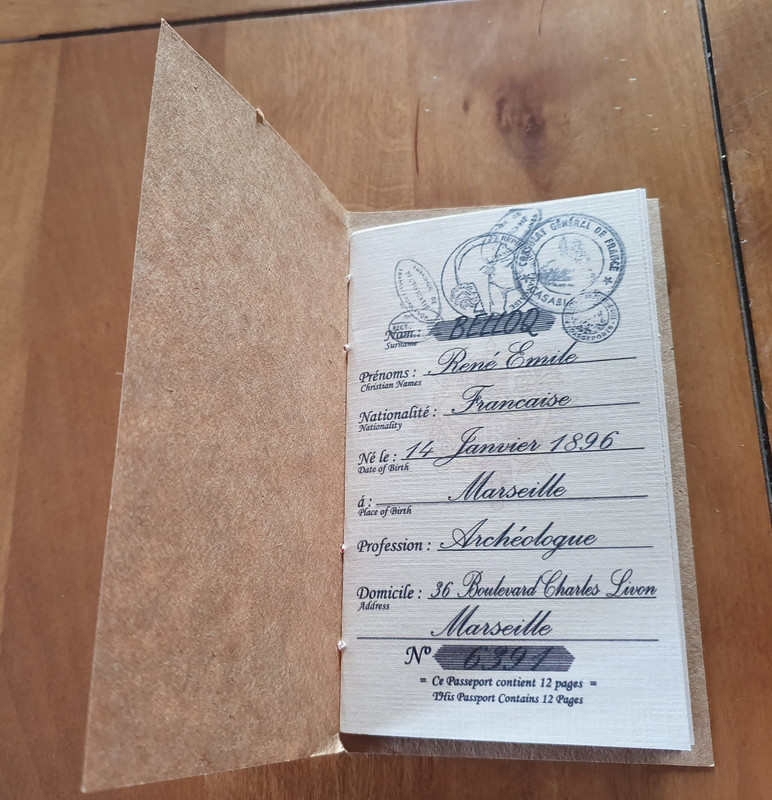 CONSULAT GÉNÉRAL DE FRANCE
Nom: BELLOQ
Surname
Prénoms : René Emile
Christian Names
Nationalité : Francaise
Nationality
Né le : 14 Janvier 1896
Date of Birth
á : Marseille
Place of Birth
Profession : Archéologue
Domicile : 36 Boulevard Charles Livon
Address
Marseille
Nº 6391
= Ce Passeport contient 12 pages =
THis Passport Contains 12 Pages